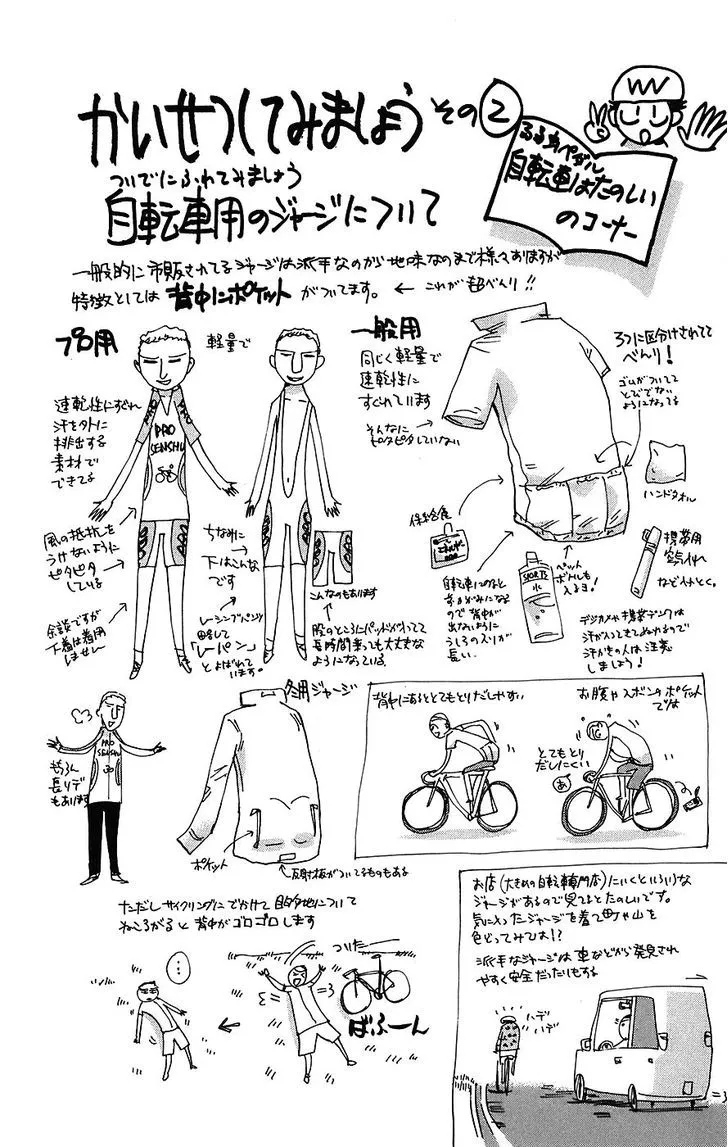 かいせつしてみましょう その2
弱虫ペダル
自転車はたのしい
のコーナー
ついでにふれてみましょう
自転車用のジャージについて
一般的に市販されてるジャージは派手なのから地味なのまで様々ありますが
特徴としては背中にポケットがついてます。 ← これが超べんり!!
プロ用
軽量で
速乾性にすぐれ
汗を外に
排出する
素材で
できてる
PRO
SENSHU
風の抵抗を
うけないように
ピタピタ
している
余談ですが
下着は着用
しません
ちなみに
下はこんな
です
レーシングパンツ
略して
「レーパン」
とよばれて
います。
こんなのもあります
股のところにパッドが入ってて
長時間乗っても大丈夫な
ようになっている。
一般用
同じく軽量で
速乾性に
すぐれています
そんなに
ピタピタしていない
3つに区分けされてて
べんり!
ゴムがついてて
とびでない
ようになってる
ハンドタオル
補給食
自転車にのると
前かがみになる
ので背中が
出ないように
うしろの入りが
長い
SPORTS
水
ペット
ボトルも
入るヨ!
携帯用
空気入れ
などなど。
デジカメや携帯デンワは
汗が入ってきてぬれるので
汗かきの人は注意
しましょう!
PRO
SENSHU
もちろん
長リデ
もあります
冬用ジャージ
ポケット
反射板がついてるものもある
背中にあるととてもとりだしやすい
お腹やズボンのポケット
では
とてもとり
だしにくい
あ
ただしサイクリングにでかけて目的地について
ねころがると背中がゴロゴロします
…
ついたー
ばふーん
お店(大きめの自転車専門店)にいくといろいろな
ジャージがあるので見てるとたのしいです。
気に入ったジャージを着て町や山を
色どってみては!?
派手なジャージは車などから発見され
やすく安全だったりもする
ハデ
ハデ